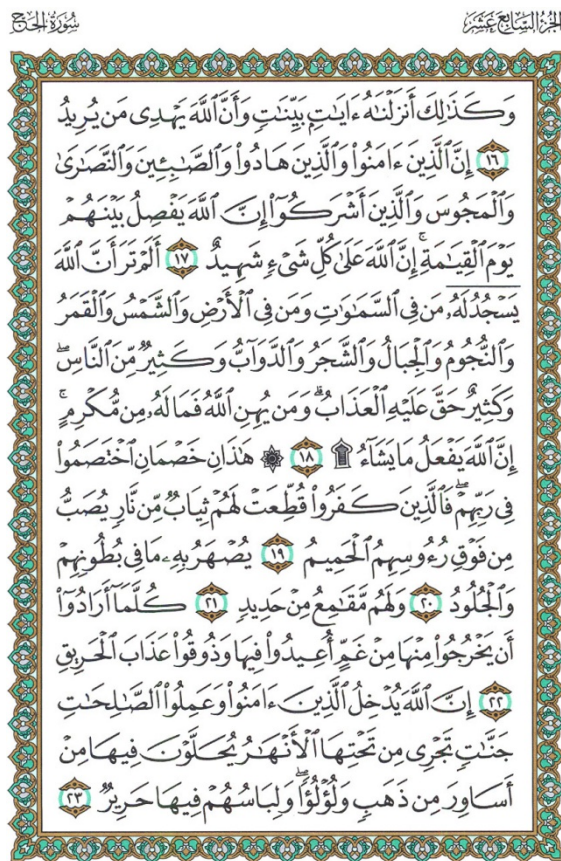 الجزء السابع عشر
سورة الحج
وَكَذَٰلِكَ أَنزَلْنَٰهُ ءَايَٰتٍۭ بَيِّنَٰتٍ وَأَنَّ ٱللَّهَ يَهْدِى مَن يُرِيدُ
١٦ إِنَّ ٱلَّذِينَ ءَامَنُوا۟ وَٱلَّذِينَ هَادُوا۟ وَٱلصَّٰبِـِٔينَ وَٱلنَّصَٰرَىٰ
وَٱلْمَجُوسَ وَٱلَّذِينَ أَشْرَكُوٓا۟ إِنَّ ٱللَّهَ يَفْصِلُ بَيْنَهُمْ
يَوْمَ ٱلْقِيَٰمَةِ ۚ إِنَّ ٱللَّهَ عَلَىٰ كُلِّ شَىْءٍ شَهِيدٌ ١٧ أَلَمْ تَرَ أَنَّ ٱللَّهَ
يَسْجُدُ لَهُۥ مَن فِى ٱلسَّمَٰوَٰتِ وَمَن فِى ٱلْأَرْضِ وَٱلشَّمْسُ وَٱلْقَمَرُ
وَٱلنُّجُومُ وَٱلْجِبَالُ وَٱلشَّجَرُ وَٱلدَّوَآبُّ وَكَثِيرٌ مِّنَ ٱلنَّاسِ ۖ
وَكَثِيرٌ حَقَّ عَلَيْهِ ٱلْعَذَابُ ۗ وَمَن يُهِنِ ٱللَّهُ فَمَا لَهُۥ مِن مُّكْرِمٍ ۚ
إِنَّ ٱللَّهَ يَفْعَلُ مَا يَشَآءُ ۩ ١٨ ۞ هَٰذَانِ خَصْمَانِ ٱخْتَصَمُوا۟
فِى رَبِّهِمْ ۖ فَٱلَّذِينَ كَفَرُوا۟ قُطِّعَتْ لَهُمْ ثِيَابٌ مِّن نَّارٍ يُصَبُّ
مِن فَوْقِ رُءُوسِهِمُ ٱلْحَمِيمُ ١٩ يُصْهَرُ بِهِۦ مَا فِى بُطُونِهِمْ
وَٱلْجُلُودُ ٢٠ وَلَهُم مَّقَٰمِعُ مِنْ حَدِيدٍ ٢١ كُلَّمَآ أَرَادُوٓا۟
أَن يَخْرُجُوا۟ مِنْهَا مِنْ غَمٍّ أُعِيدُوا۟ فِيهَا وَذُوقُوا۟ عَذَابَ ٱلْحَرِيقِ
٢٢ إِنَّ ٱللَّهَ يُدْخِلُ ٱلَّذِينَ ءَامَنُوا۟ وَعَمِلُوا۟ ٱلصَّٰلِحَٰتِ
جَنَّٰتٍ تَجْرِى مِن تَحْتِهَا ٱلْأَنْهَٰرُ يُحَلَّوْنَ فِيهَا مِنْ
أَسَاوِرَ مِن ذَهَبٍ وَلُؤْلُؤًا ۖ وَلِبَاسُهُمْ فِيهَا حَرِيرٌ ٢٣